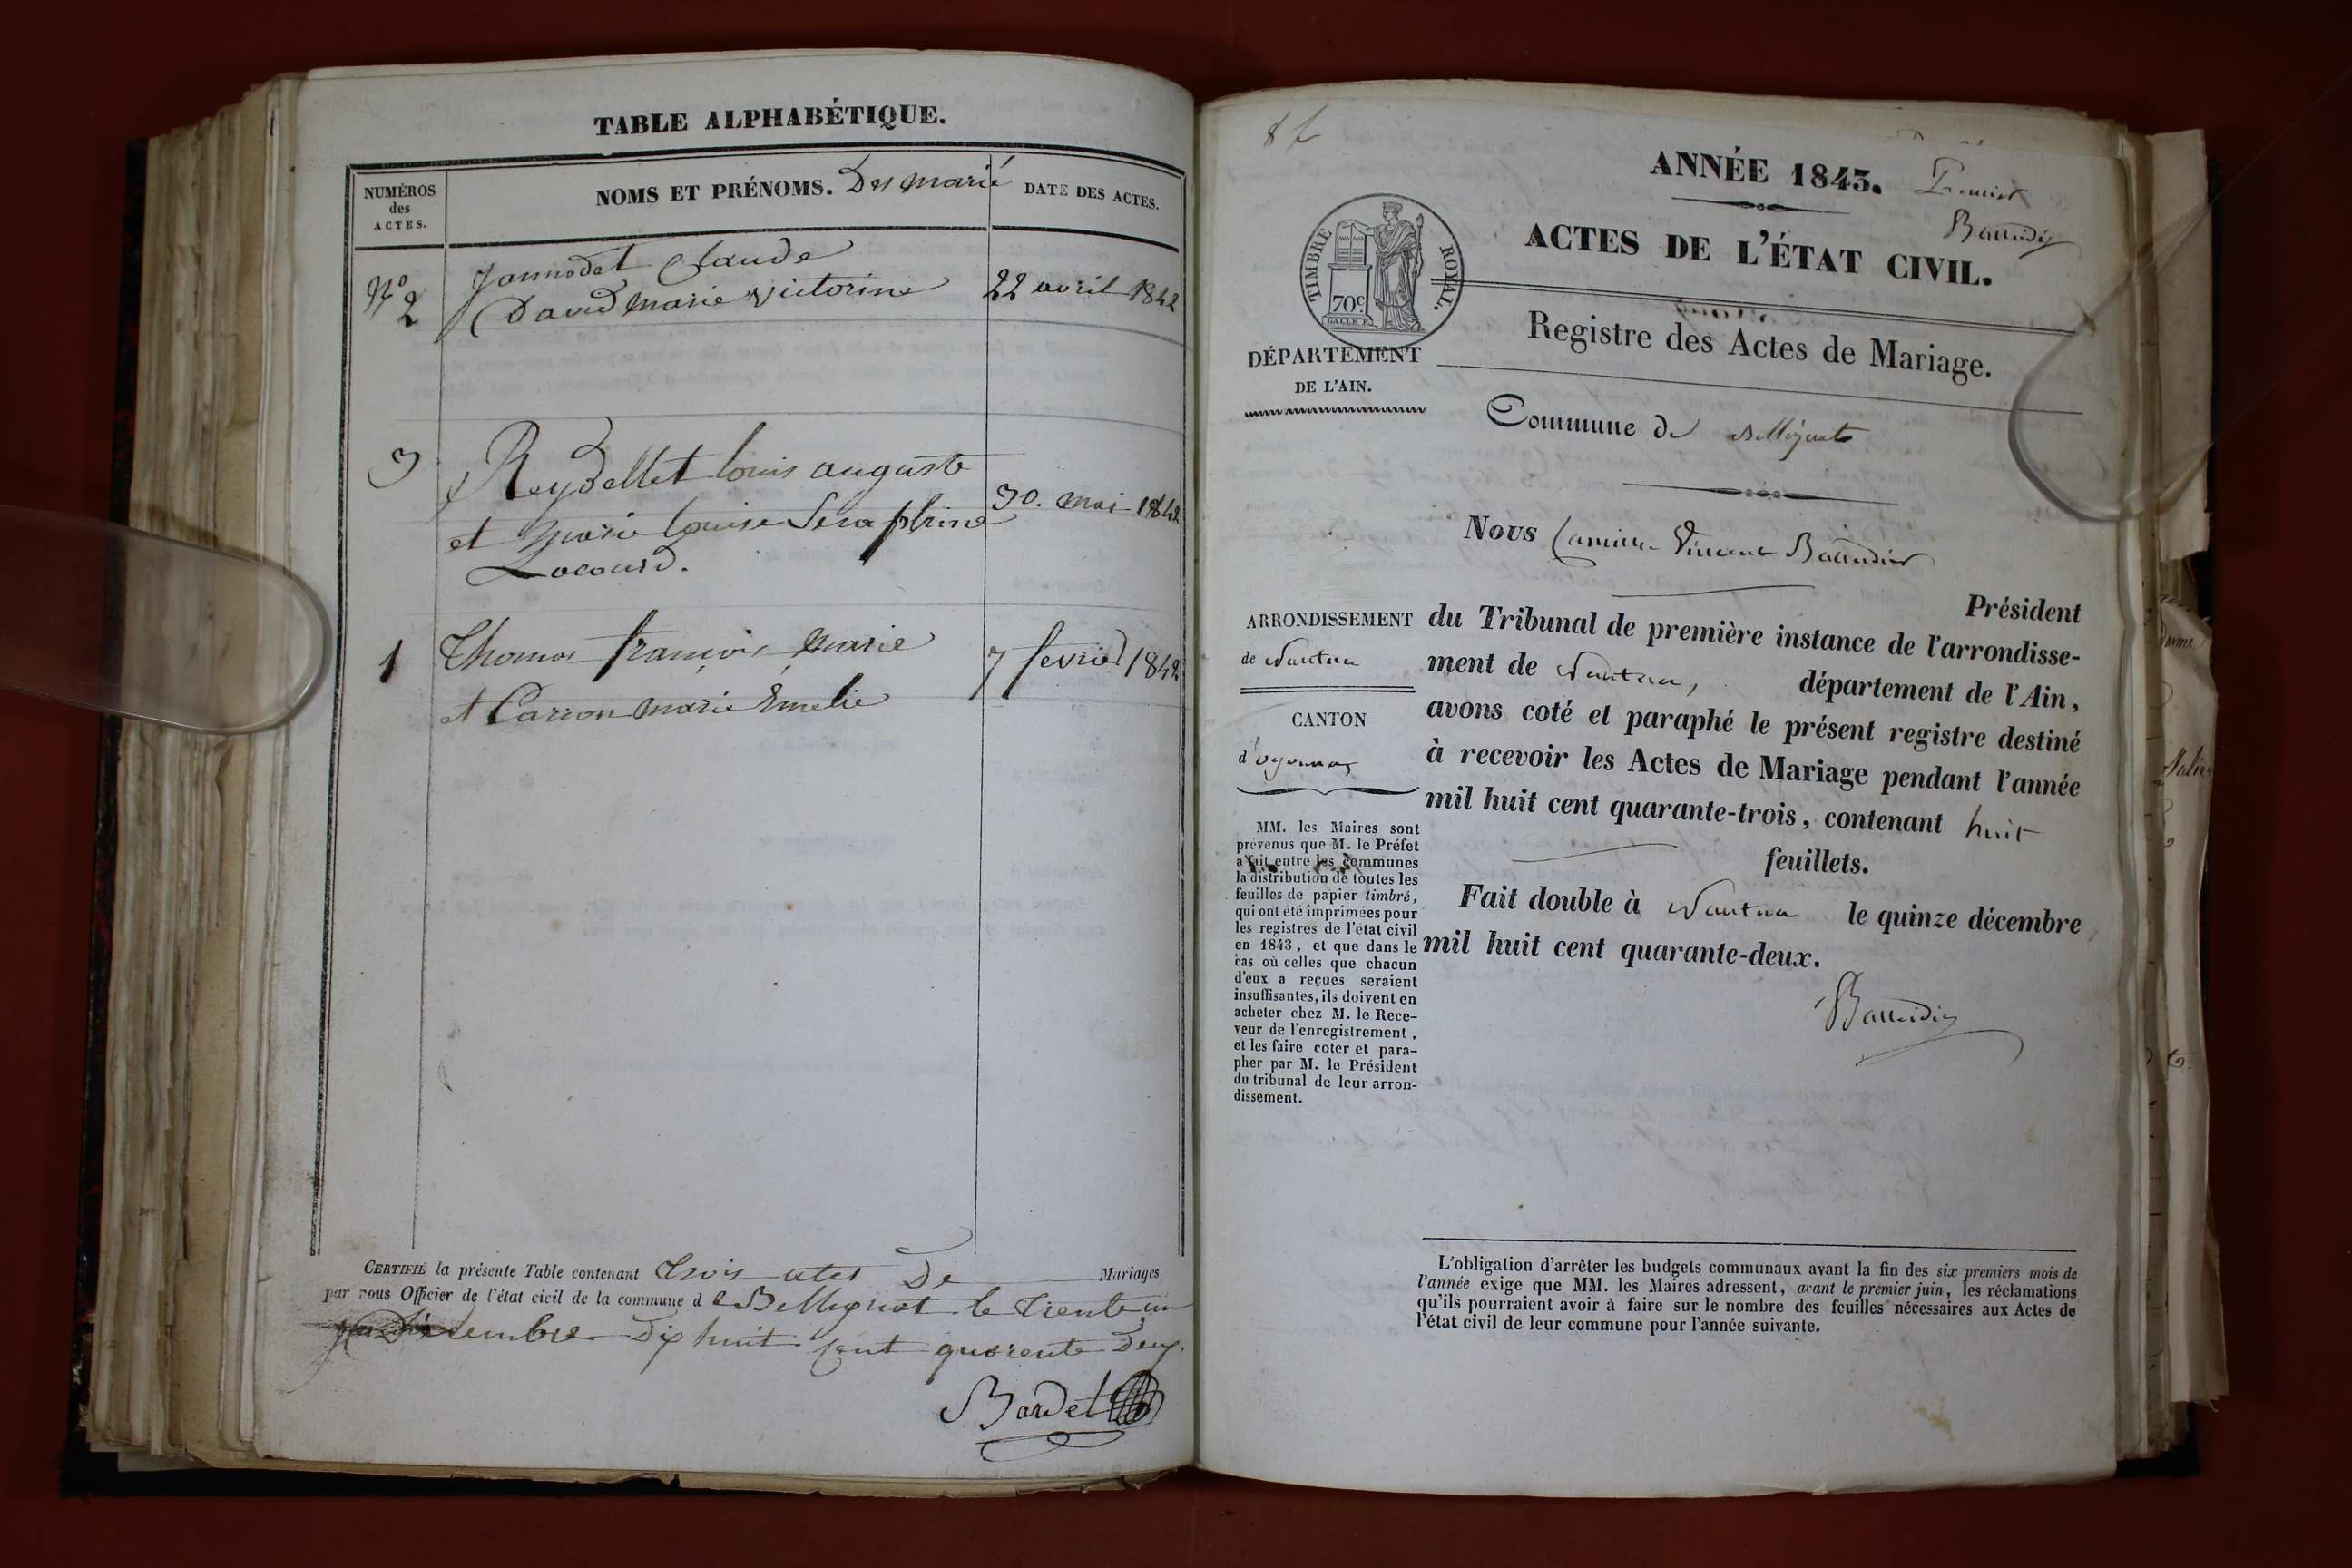 TABLE ALPHABÉTIQUE.
NUMÉROS
des
ACTES.
NOMS ET PRÉNOMS. Des marié
DATE DES ACTES.
Nº 2
Jannodet Claude
David marie victorine
22 avril 1842
3
Reydellet louis auguste
et marie louise Seraphine
Locard.
30. mai 1842
1
Thomas françois marie
et Carron marie Emelie
7 fevrier 1842
CERTIFIÉ la présente Table contenant trois actes De Mariages
par nous Officier de l'état civil de la commune de Bellignat le trente un
Décembre Dix huit cent quarente Deux.
Bardet
8 f
ANNÉE 1843.
Premier
ACTES DE L'ÉTAT CIVIL.
TIMBRE ROYAL.
70c
GALLE F.
Registre des Actes de Mariage.
DÉPARTEMENT
DE L'AIN.
Commune de Bellignat
Nous Camille Vincent Baudin
Président
ARRONDISSEMENT
de Nantua
CANTON
d'oyonnax
du Tribunal de première instance de l'arrondisse-
ment de Nantua, département de l'Ain,
avons coté et paraphé le présent registre destiné
à recevoir les Actes de Mariage pendant l'année
mil huit cent quarante-trois, contenant huit
feuillets.
Fait double à Nantua le quinze décembre
mil huit cent quarante-deux.
MM. les Maires sont
prévenus que M. le Préfet
a fait entre les communes
la distribution de toutes les
feuilles de papier timbré,
qui ont été imprimées pour
les registres de l'état civil
en 1843, et que dans le
cas où celles que chacun
d'eux a reçues seraient
insuffisantes, ils doivent en
acheter chez M. le Rece-
veur de l'enregistrement,
et les faire coter et para-
pher par M. le Président
du tribunal de leur arron-
dissement.
L'obligation d'arrêter les budgets communaux avant la fin des six premiers mois de
l'année exige que MM. les Maires adressent, avant le premier juin, les réclamations
qu'ils pourraient avoir à faire sur le nombre des feuilles nécessaires aux Actes de
l'état civil de leur commune pour l'année suivante.